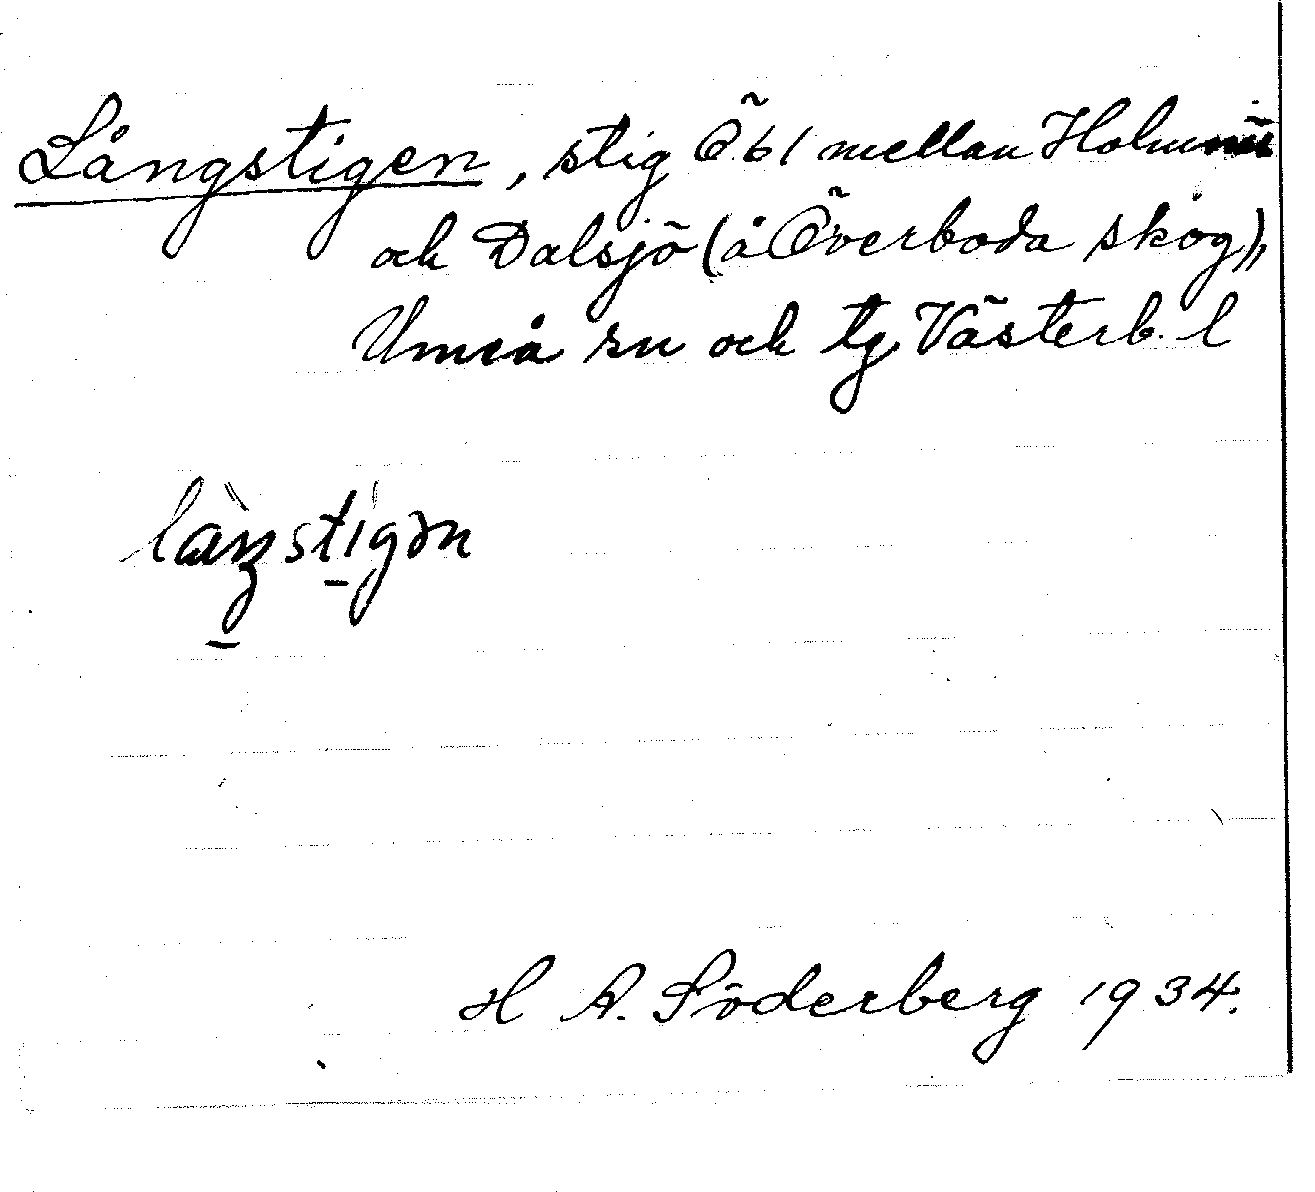 Långstigen, stig Öbl mellan
och Dalsjö (å Överboda skog),
Umeå sn och tg Västerb. l
H A. Söderberg 1934.